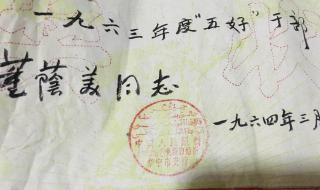 一九六三年度"五好"干部
董蔭美同志
一九六四年三月